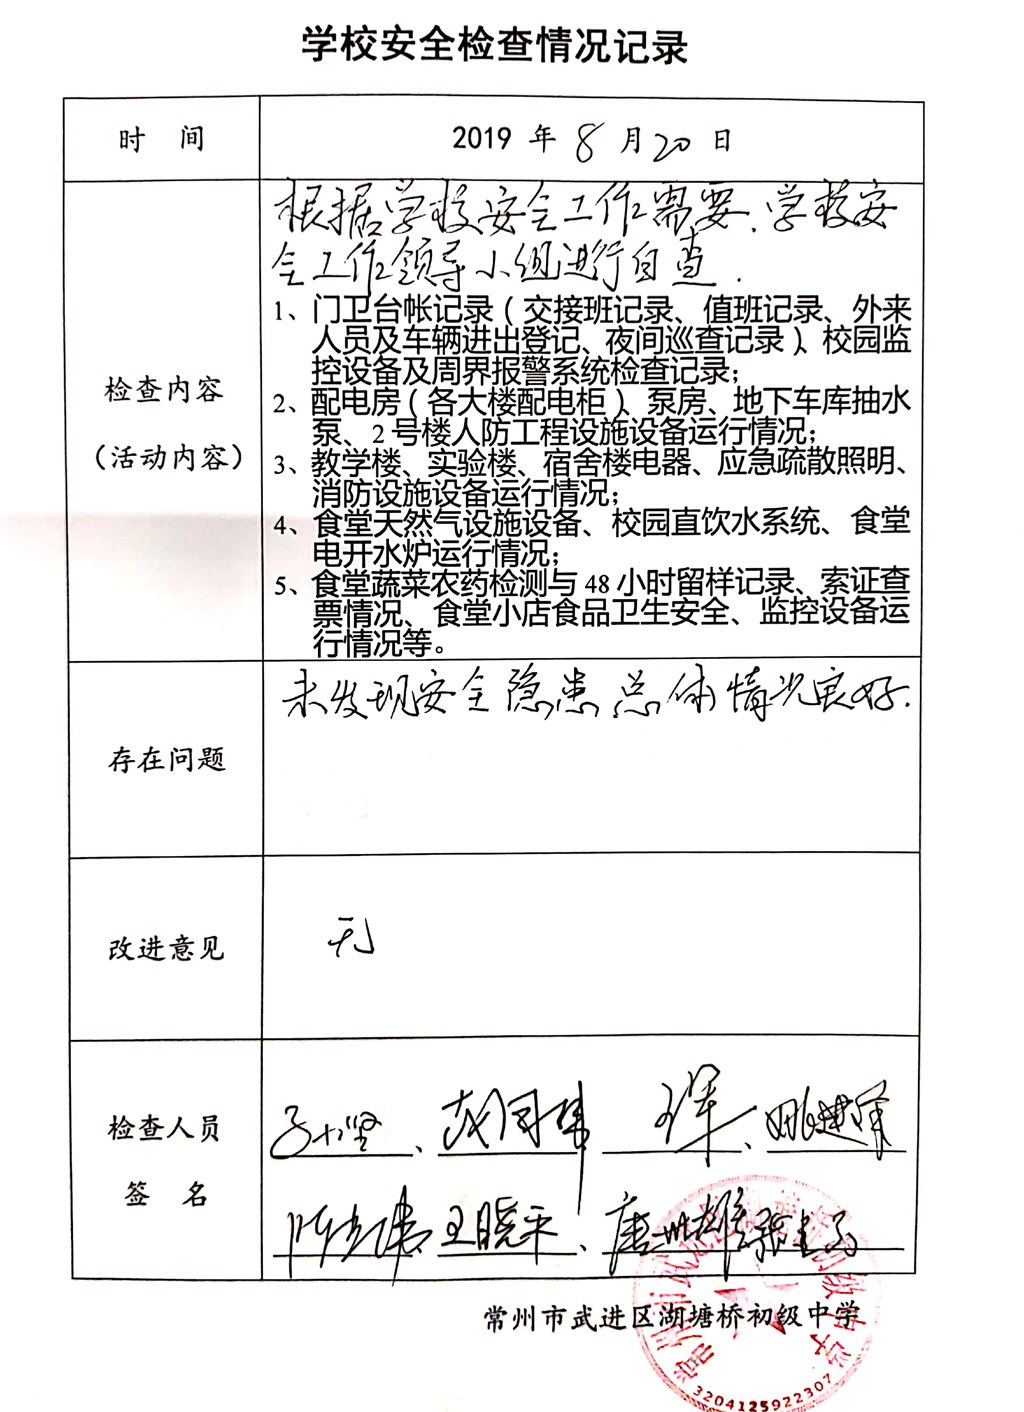 学校安全检查情况记录
时 间
2019 年 8 月 20 日
根据学校安全工作需要.学校安
全工作领导小组进行自查.
检查内容
（活动内容）
1、门卫台帐记录（交接班记录、值班记录、外来
人员及车辆进出登记、夜间巡查记录）、校园监
控设备及周界报警系统检查记录；
2、配电房（各大楼配电柜）、泵房、地下车库抽水
泵、2 号楼人防工程设施设备运行情况；
3、教学楼、实验楼、宿舍楼电器、应急疏散照明、
消防设施设备运行情况；
4、食堂天然气设施设备、校园直饮水系统、食堂
电开水炉运行情况；
5、食堂蔬菜农药检测与 48 小时留样记录、索证查
票情况、食堂小店食品卫生安全、监控设备运
行情况等。
存在问题
未发现安全隐患总体情况良好.
改进意见
无
检查人员
签 名
王晓平、
常州市武进区湖塘桥初级中学
3204125922307